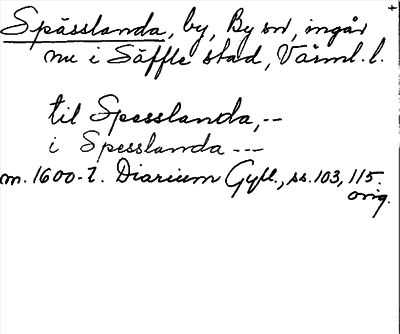 Spässlanda, by, By sn, ingår
nu i Säffle stad, Värml. l.
til Spesslanda, --
i Spesslanda ---
m. 1600-t. Diarium Gyll., ss. 103, 115.
orig.